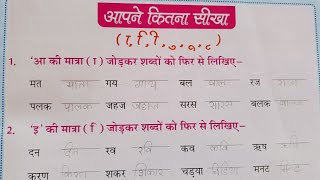 आपने कितना सीखा
1. 'आ की मात्रा ( ा ) जोड़कर शब्दों को फिर से लिखिए–
मत माता गय गाय बल रज
पलक पालक जहज जहाज सरस सारस बलक
2. 'इ' की मात्रा ( ि ) जोड़कर शब्दों को फिर से लिखिए–
दन दिन रव रवि कव कवि ऋष ऋषि
करण किरण शकर शिकार चड़या मनट मिनट